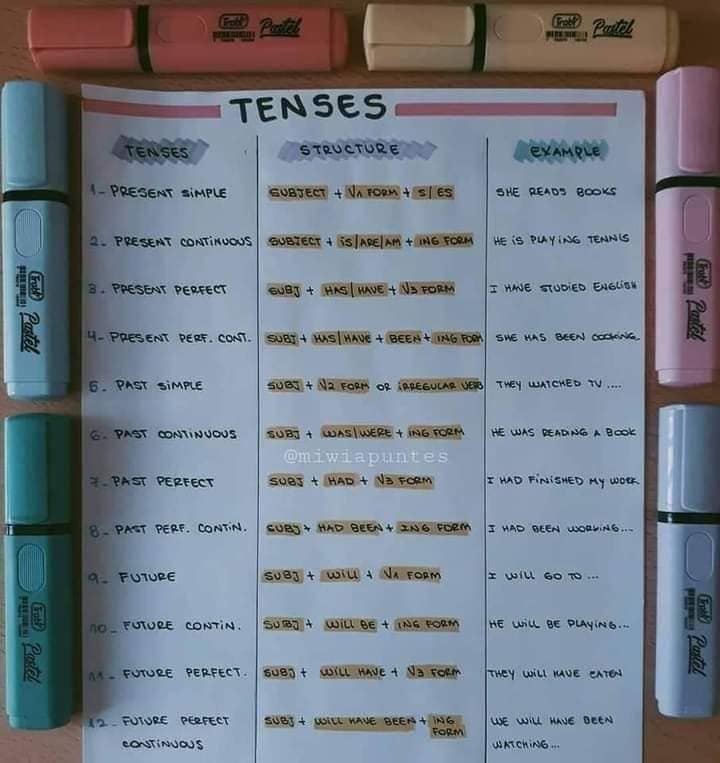 Trabi Pastel
Trabi Pastel
TENSES
TENSES STRUCTURE EXAMPLE
1- PRESENT SIMPLE SUBJECT + V1 FORM + S/ES SHE READS BOOKS
2- PRESENT CONTINUOUS SUBJECT + IS/ARE/AM + ING FORM HE IS PLAYING TENNIS
3- PRESENT PERFECT SUBJ + HAS/HAVE + V3 FORM I HAVE STUDIED ENGLISH
4- PRESENT PERF. CONT. SUBJ + HAS/HAVE + BEEN + ING FORM SHE HAS BEEN COOKING.
5- PAST SIMPLE SUBJ + V2 FORM OR IRREGULAR VERB THEY WATCHED TV ....
6- PAST CONTINUOUS SUBJ + WAS/WERE + ING FORM HE WAS READING A BOOK
@miwiapuntes
7- PAST PERFECT SUBJ + HAD + V3 FORM I HAD FINISHED MY WORK
8- PAST PERF. CONTIN. SUBJ + HAD BEEN + ING FORM I HAD BEEN WORKING...
9- FUTURE SUBJ + WILL + V1 FORM I WILL GO TO ...
10- FUTURE CONTIN. SUBJ + WILL BE + ING FORM HE WILL BE PLAYING...
11- FUTURE PERFECT. SUBJ + WILL HAVE + V3 FORM THEY WILL HAVE EATEN
12- FUTURE PERFECT SUBJ + WILL HAVE BEEN + ING WE WILL HAVE BEEN
CONTINUOUS FORM WATCHING...
Trabi Pastel
Trabi Pastel
Trabi Pastel
Trabi Pastel